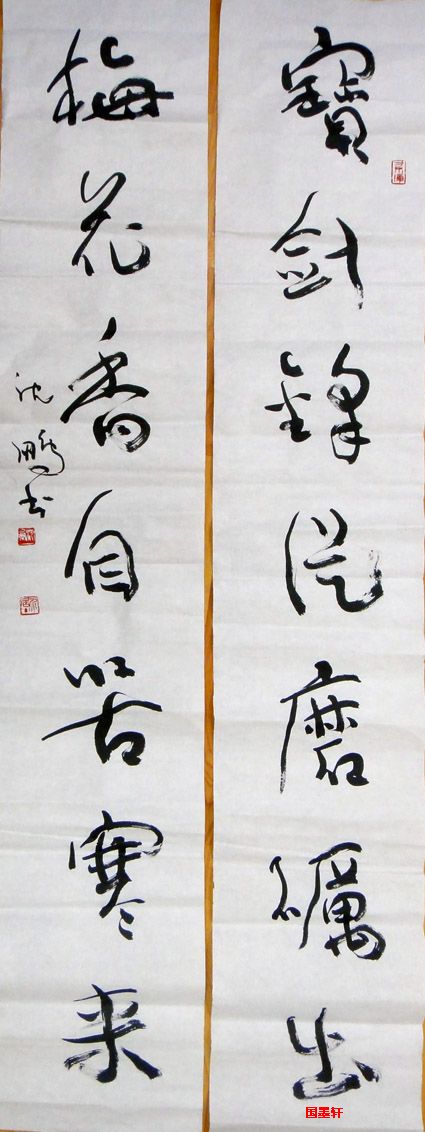 寶劍鋒從磨礪出
梅花香自苦寒来
沈鹏书
国墨轩